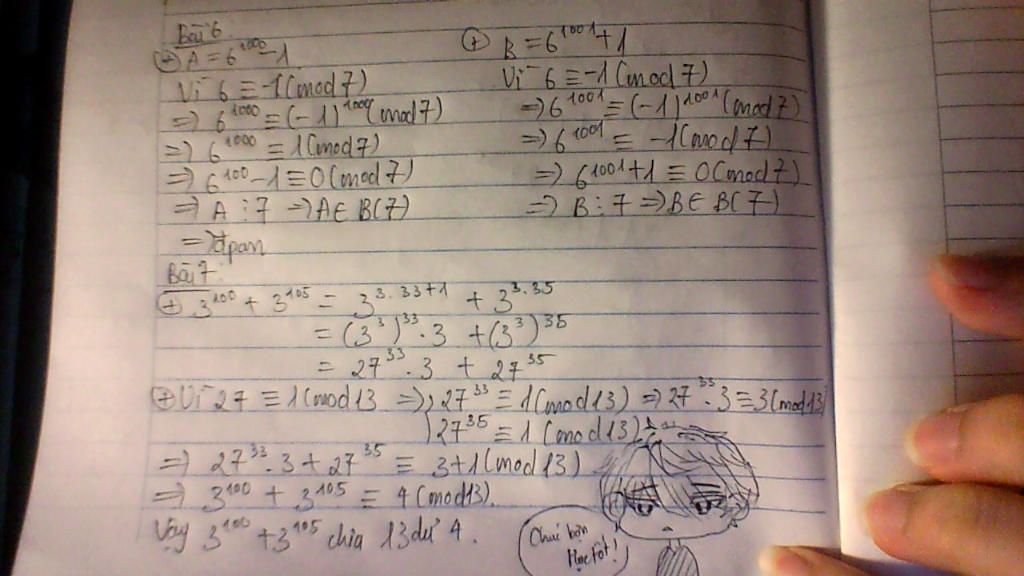 Bài 6
(+) A = 6^1000 - 1
Vì 6 ≡ -1 (mod 7)
=> 6^1000 ≡ (-1)^1000 (mod 7)
=> 6^1000 ≡ 1 (mod 7)
=> 6^100 - 1 ≡ 0 (mod 7)
=> A ⋮ 7 => A ∈ B(7)
=> đpcm
(+) B = 6^1001 + 1
Vì 6 ≡ -1 (mod 7)
=> 6^1001 ≡ (-1)^1001 (mod 7)
=> 6^1001 ≡ -1 (mod 7)
=> 6^1001 + 1 ≡ 0 (mod 7)
=> B ⋮ 7 => B ∈ B(7)
Bài 7:
(+) 3^100 + 3^105 = 3^(3.33+1) + 3^(3.35)
= (3^3)^33 . 3 + (3^3)^35
= 27^33 . 3 + 27^35
(+) Vì 27 ≡ 1 (mod 13 => ) 27^33 ≡ 1 (mod 13) => 27^33 . 3 ≡ 3 (mod 13)
) 27^35 ≡ 1 (mod 13)
=> 27^33 . 3 + 27^35 ≡ 3 + 1 (mod 13)
=> 3^100 + 3^105 ≡ 4 (mod 13).
Vậy 3^100 + 3^105 chia 13 dư 4.
Chúc bạn
học tốt!